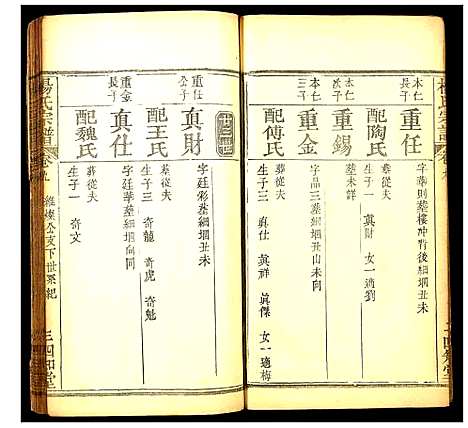 楊氏宗譜
本仁長子
重任
字華則墓樓冲背後細堋丑未
配陶氏
墓未詳
生子一 真財 女一適劉
本仁二子
重錫
本仁三子
重金
字品三墓細堋丑山未向
配傅氏
葬從夫
生子三 真仕 真祥 真傑 女一適梅
十二世
重任公子
真財
字廷彩墓細堋丑未
配王氏
墓從夫
生子三 奇龍 奇虎 奇魁
重金長子
真仕
字廷華墓細堋向同
配魏氏
葬從夫
生子一 奇文
楊氏宗譜
卷九
維燦公支下世系紀
三四知堂